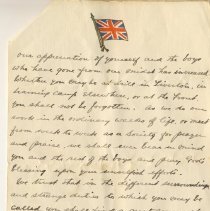 our appreciation of yourself and the boys
who have gone from our midst has increased
Whether you may be at drill in Lincoln, in
training camp elsewhere, or at the Front
you shall not be forgotten. As we do our
work in the ordinary walks of life, or meet
from week to week as a Society for prayer
and praise, we shall ever bear in mind
you and the rest of the boys and pray God's
blessing upon your unselfish efforts.
We trust that in the different surroundings
and strange duties to which you may be
called